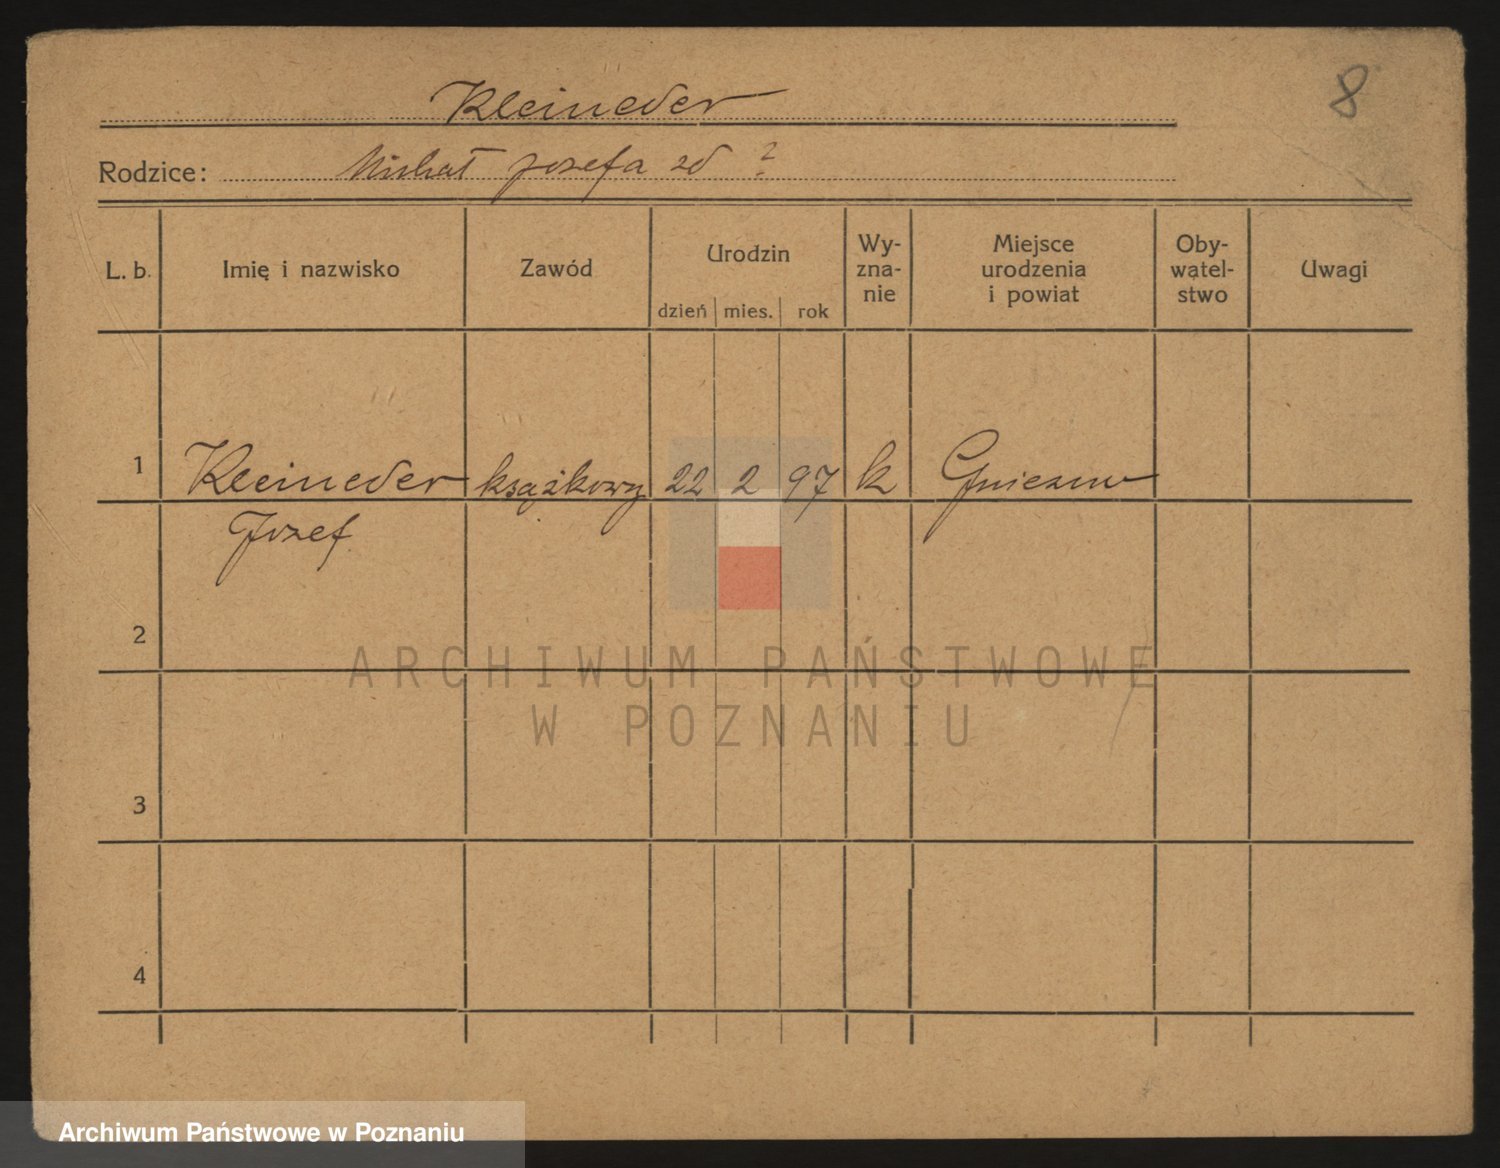 8
Kleineder
Rodzice: Michał Jozefa zd ?
L. b. Imię i nazwisko Zawód Urodzin dzień mies. rok Wy-zna-nie Miejsce urodzenia i powiat Oby-watel-stwo Uwagi
1 Kleineder książkowy 22 2 97 k Gniezno
Jozef
2
ARCHIWUM PAŃSTWOWE
W POZNANIU
3
4
Archiwum Państwowe w Poznaniu